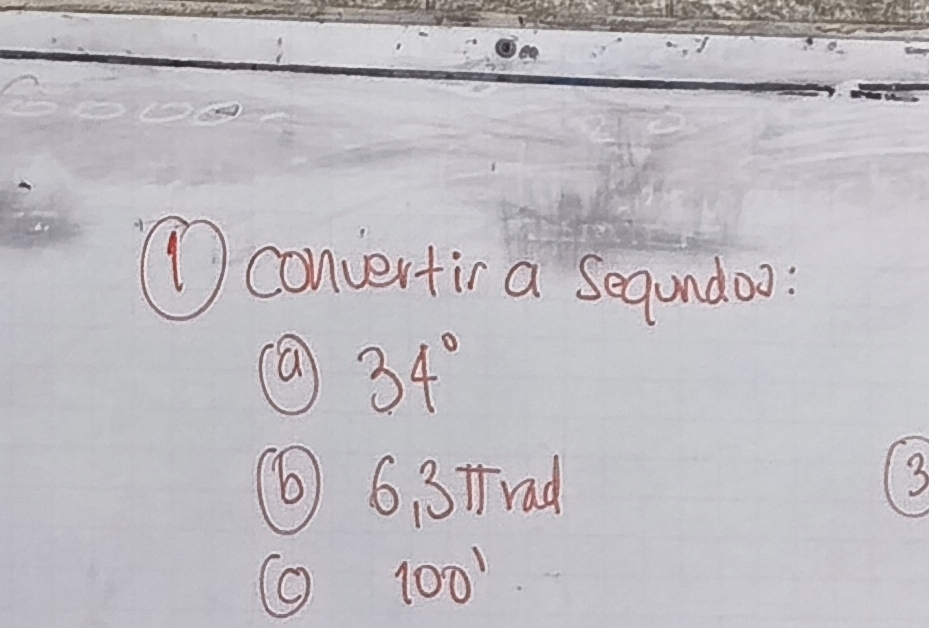 1 convertir a segundos:
a 34°
b 6,3 π rad
3
c 100'